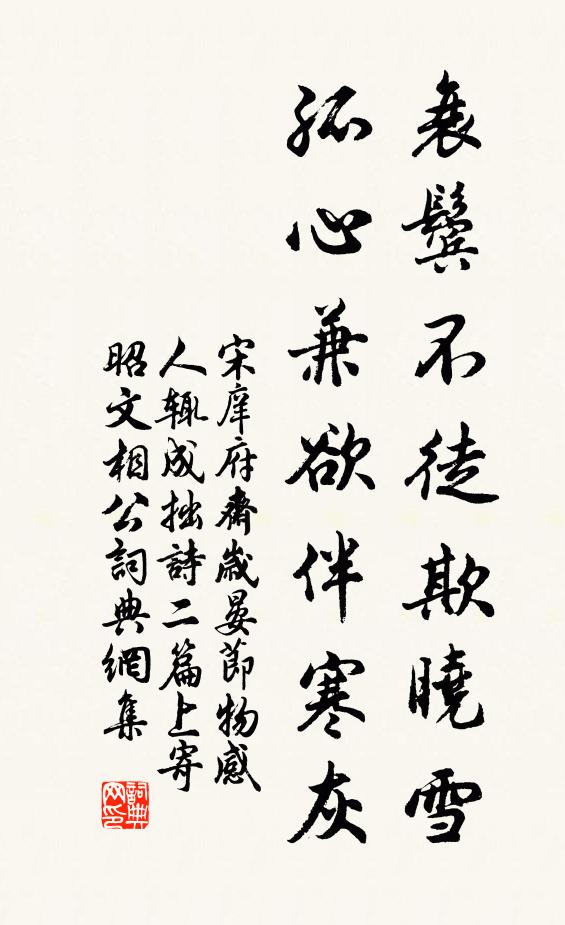 衰鬢不徒欺曉雪
孤心兼欲伴寒灰
宋庠府齋歲晏節物感
人輒成拙詩二篇上寄
昭文相公詞典網集
詞典
网印